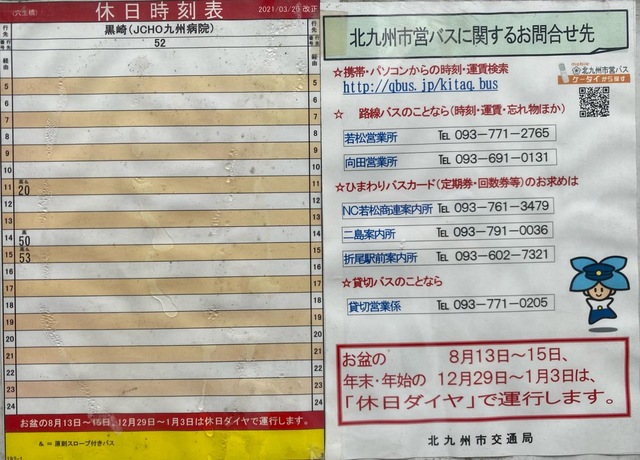 (穴生橋)
休日時刻表
2021/03/20 改正
行先
黒崎(JCHO九州病院)
行先
番号
52
番号
経由
経由
5 5
6 6
7 7
8 8
9 9
10 10
11 20 11
12 12
13 13
14 50 14
15 53 15
16 16
17 17
18 18
19 19
20 20
21 21
22 22
23 23
24 24
お盆の8月13日〜15日、12月29日〜1月3日は休日ダイヤで運行します。
& = 原則スロープ付きバス
北九州市営バスに関するお問合せ先
☆携帯・パソコンからの時刻・運賃検索
http://qbus.jp/kitaq_bus
北九州市営バス
ケータイから探す
☆ 路線バスのことなら(時刻・運賃・忘れ物ほか)
若松営業所 TEL 093-771-2765
向田営業所 TEL 093-691-0131
☆ひまわりバスカード(定期券・回数券等)のお求めは
NC若松商連案内所 TEL 093-761-3479
二島案内所 TEL 093-791-0036
折尾駅前案内所 TEL 093-602-7321
☆貸切バスのことなら
貸切営業係 TEL 093-771-0205
お盆の 8月13日〜15日、
年末・年始の 12月29日〜1月3日は、
「休日ダイヤ」で運行します。
北九州市交通局